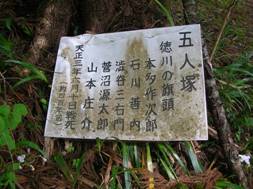 五人塚
徳川の旗頭
本多作次郎
石川善内
渋谷三右門
菅沼源太郎
山本庄介
天正三年六月十日戦死